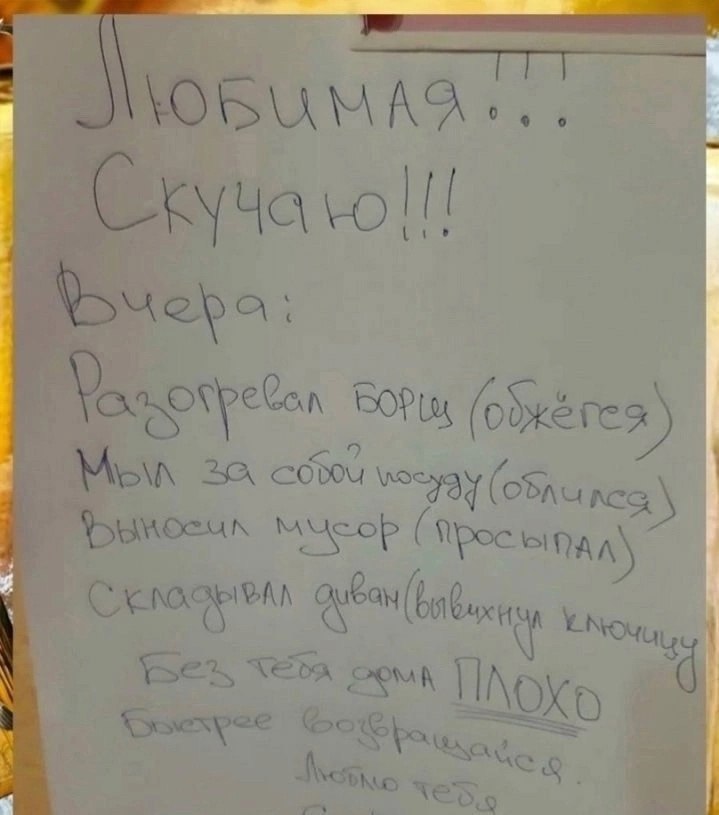 Любимая!!!
Скучаю!!!
Вчера:
Разогревал борщ (обжёгся)
Мыл за собой посуду (облился)
Выносил мусор (просыпал)
Складывал диван (вывихнул ключицу
Без тебя дома ПЛОХО
Быстрее возвращайся.
Люблю тебя